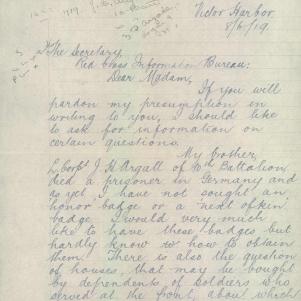 Victor Harbor
8/6/19.
The Secretary,
Red Cross Information Bureau:
Dear Madam,
If you will
pardon my presumption in
writing to you, I should like
to ask for information on
certain questions.
My brother,
L. Corpl J. H. Argall of 10th Battalion
died a prisoner in Germany and
as yet I have not sought an
honor badge or a "next of kin"
badge. I would very much
like to have these badges but
hardly know to how to obtain
them. There is also the question
of houses, that may be bought
by dependents of soldiers who
served at the front, about which